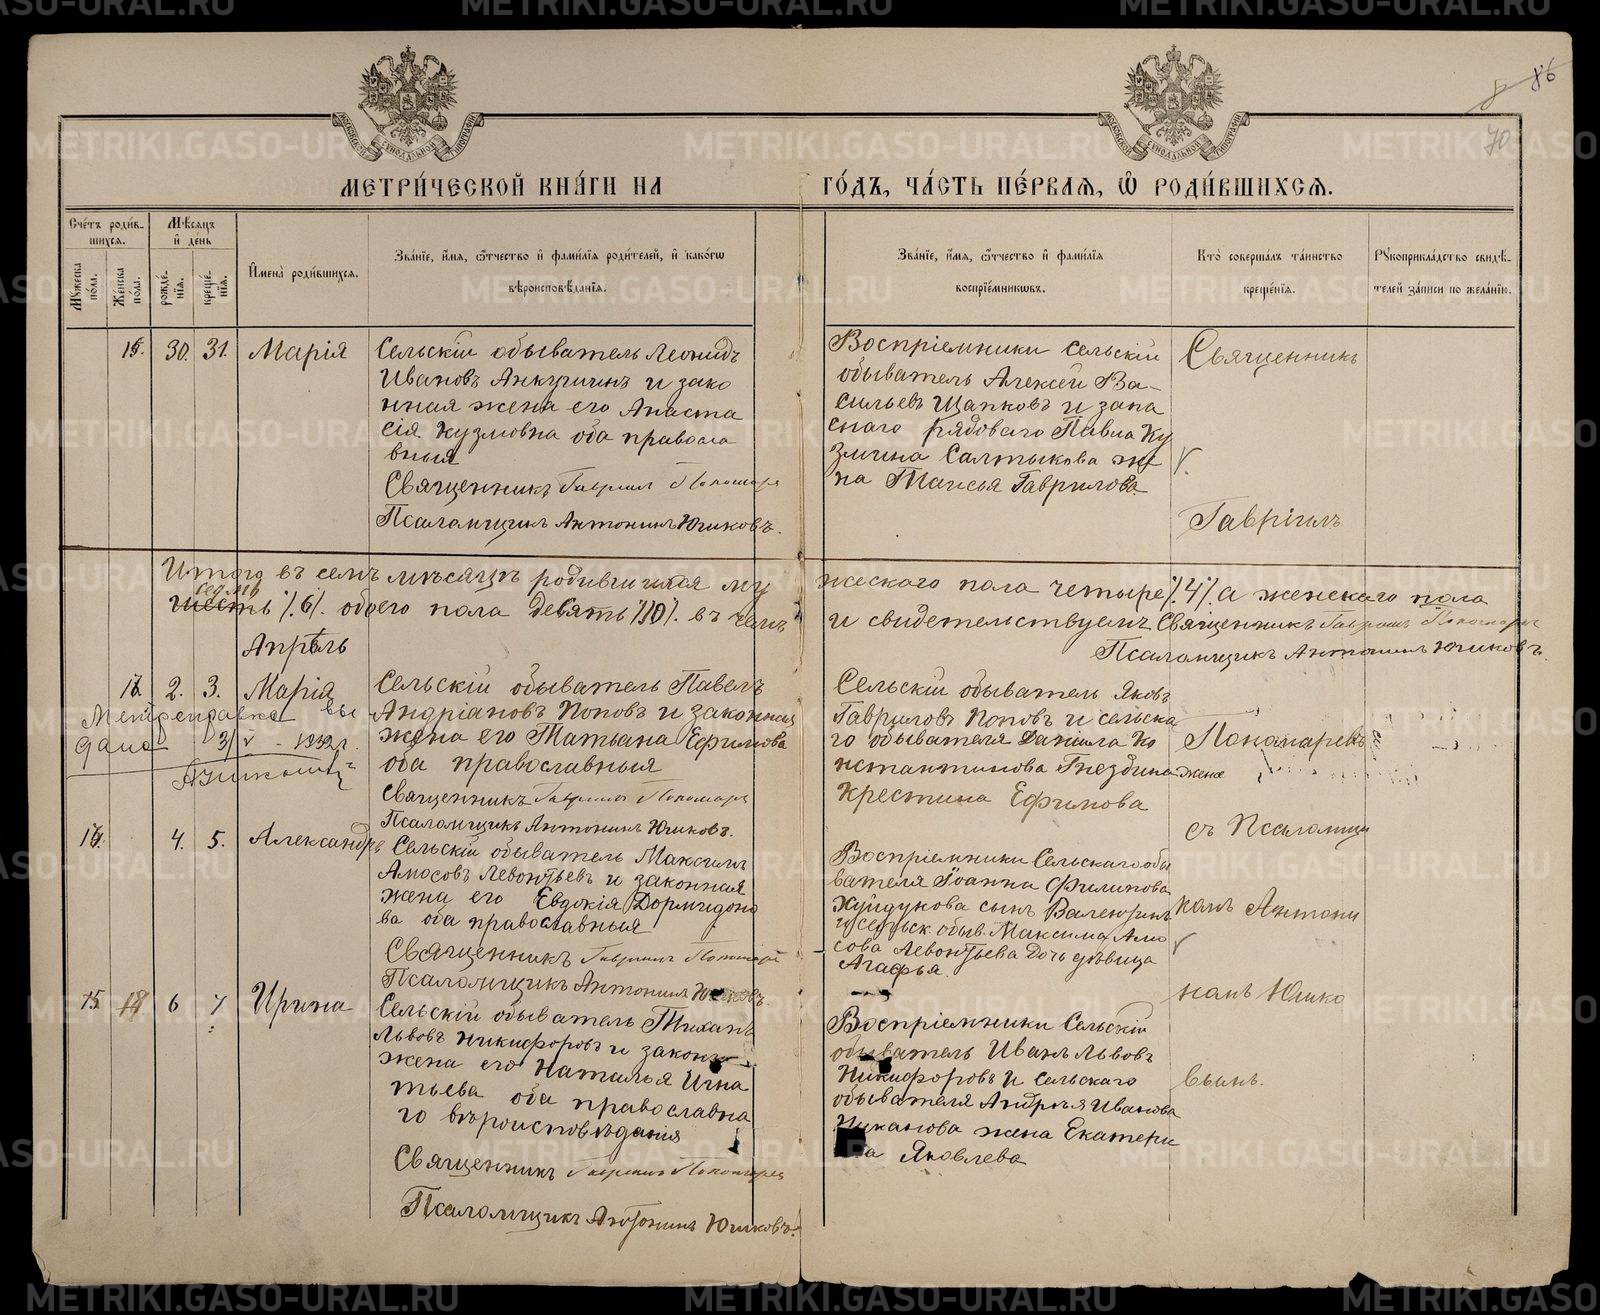 86
70
МОСКОВСКОЙ СѴНОДАЛЬНОЙ ТИПОГРАФІИ
МОСКОВСКОЙ СѴНОДАЛЬНОЙ ТИПОГРАФІИ
МЕТРИ́ЧЕСКОЙ КНИ́ГИ НА ГО́ДЪ, ЧА́СТЬ ПЕ́РВАЯ, Ѿ РОДИ́ВШИХСЯ.
Сче́тъ роди́в-
шихся.
Му́жеска по́ла.
Же́нска по́ла.
Мѣ́сяцъ
и де́нь
рожде́-
нїя.
креще́-
нїя.
Имена̀ роди́вшихся.
Зва́нїе, и́мя, о́тчество и фами́лїя роди́телей, и како́гѡ
вѣроисповѣ́данїя.
Зва́нїе, и́мя, о́тчество и фами́лїя
воспрїе́мникѡвъ.
Кто̀ соверша́лъ та́инство
креще́нїя.
Рꙋкоприкла́дство свидѣ́-
телей за́писи по жела́нїю.
15. 30. 31. Марія
Сельскій обыватель Леонидъ
Ивановъ и зако
нная жена его Анаста
сія Кузмовна оба правосла
вныя
Священникъ Гавріилъ Пономаре
Псаломщикъ Антонинъ Юшковъ.
Воспріемники Сельскій
обыватель Алексей Ва-
сильевъ Щапковъ и запа
снаго рядоваго Павла Ку
змина Салтыкова же
на Таисья Гаврилова
Священникъ
Гавріилъ
Итого въ семъ мѣсяцѣ родившихся му жескаго пола четыре ٪4٪ а женскаго пола
седмь
шесть ٪6٪. обоего пола девять ٪10٪. въ чемъ и свидетельствуемъ Священникъ Гавріилъ Пономаре
Псаломщикъ Антонинъ Юшковъ.
Апрѣль
2. 3. Марія
Сельскій обыватель Павелъ
Андріановъ Поповъ и законная
жена его Татьана Ефимова
оба православныя
Священникъ Гавріилъ Пономаре
Псаломщикъ Антонинъ Юшковъ.
вы
дана 3/V - 1932 г.
Сельскій обыватель Яковъ
Гавриловъ Поповъ и сельска
го обывателя Даніила Ко
нстантинова Гнездина жена
Крестина Ефимова
Пономаревъ
съ Псаломщи
4. 5. Александръ
Сельскій обыватель Максимъ
Амосовъ Левонтьевъ и законная
жена его Евдокія Дормидоно
ва оба православныя
Священникъ Гавріилъ Пономаре
Псаломщикъ Антонинъ Юшковъ
Воспріемники Сельскаго обы
вателя Іоанна Филипова
Хуйдукова сынъ Валентинъ
и сельск. обыв. Максима Амо
сова Левонтьева Дочь дѣвица
Агафья.
комъ Антони
номъ Юшко
15 18 6 7 Ирина
Сельскій обыватель Тихонъ
Львовъ Никифоровъ и законъ
жена его Наталья Игна
тьева оба православна
го вѣроисповѣданія
Священникъ Гавріилъ Пономарев
Псаломщикъ Антонинъ Юшковъ.
Воспріемники Сельскій
обыватель Иванъ Львовъ
Никифоровъ и сельскаго
обывателя Андрѣя Иванова
жена Екатери
на Яковлева
вымъ.
METRIKI.GASO-URAL.RU